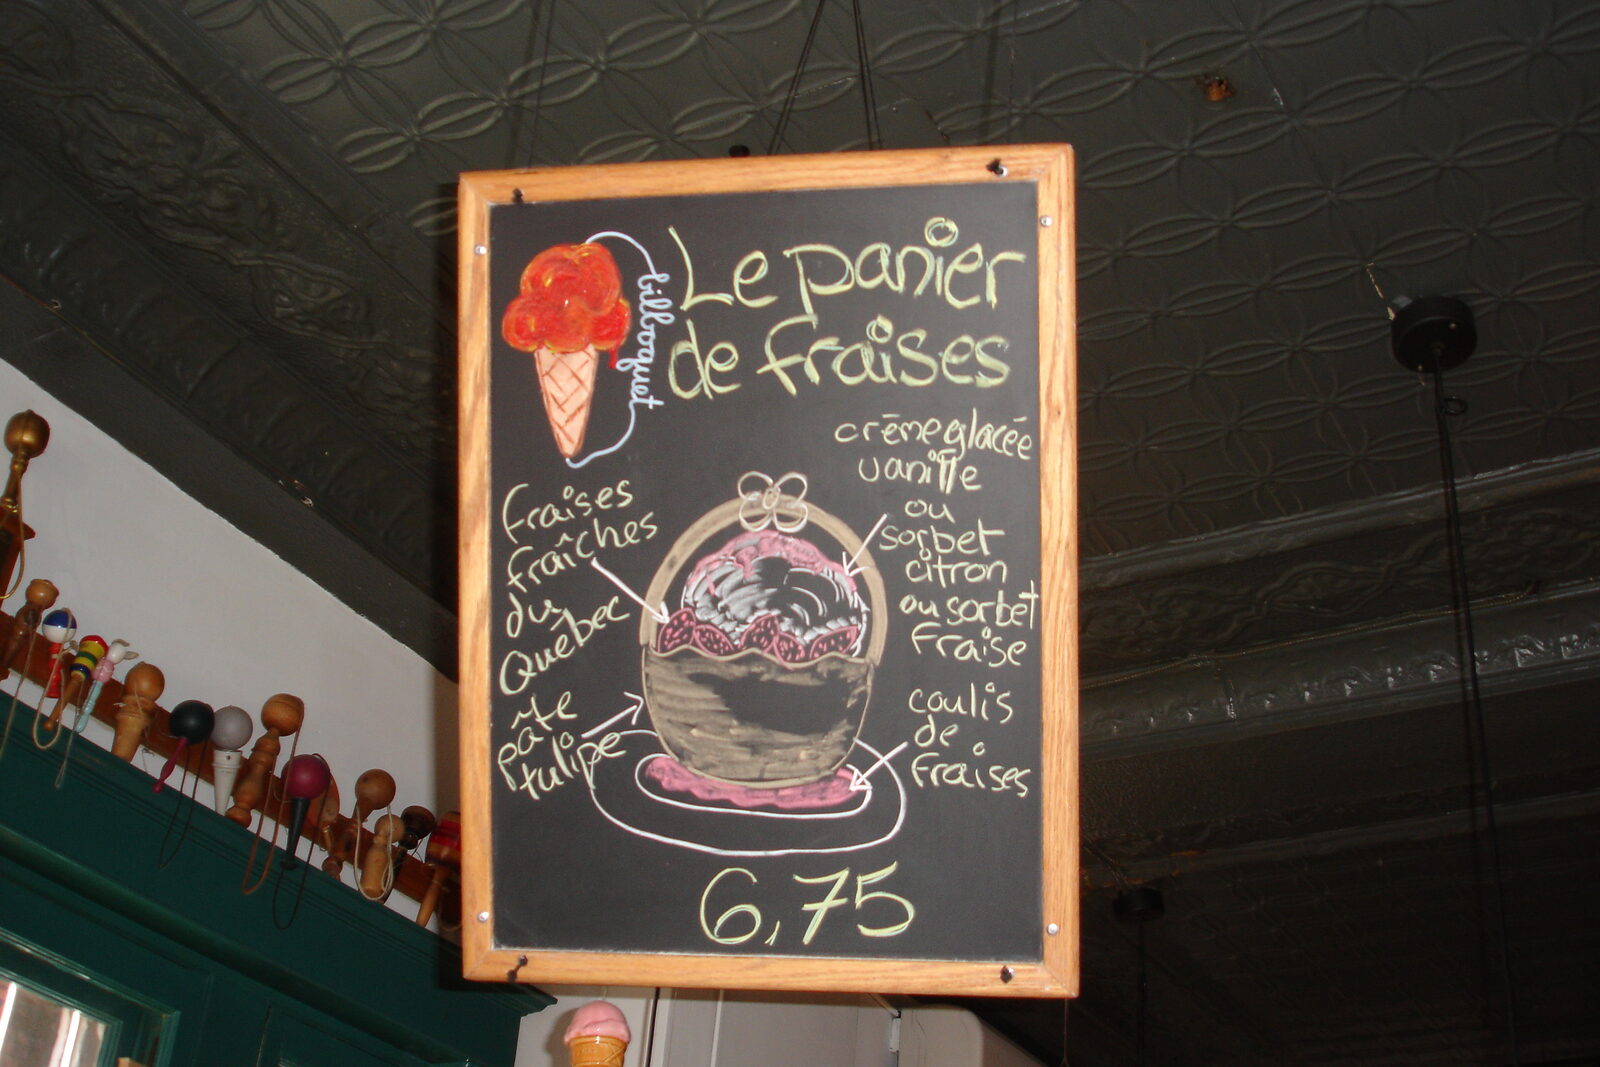 bilboquet
Le panier
de fraises
crème glacée
vanille
ou
sorbet
citron
ou sorbet
fraise
fraises
fraîches
du
Québec
pâte
tulipe
coulis
de
fraises
6,75